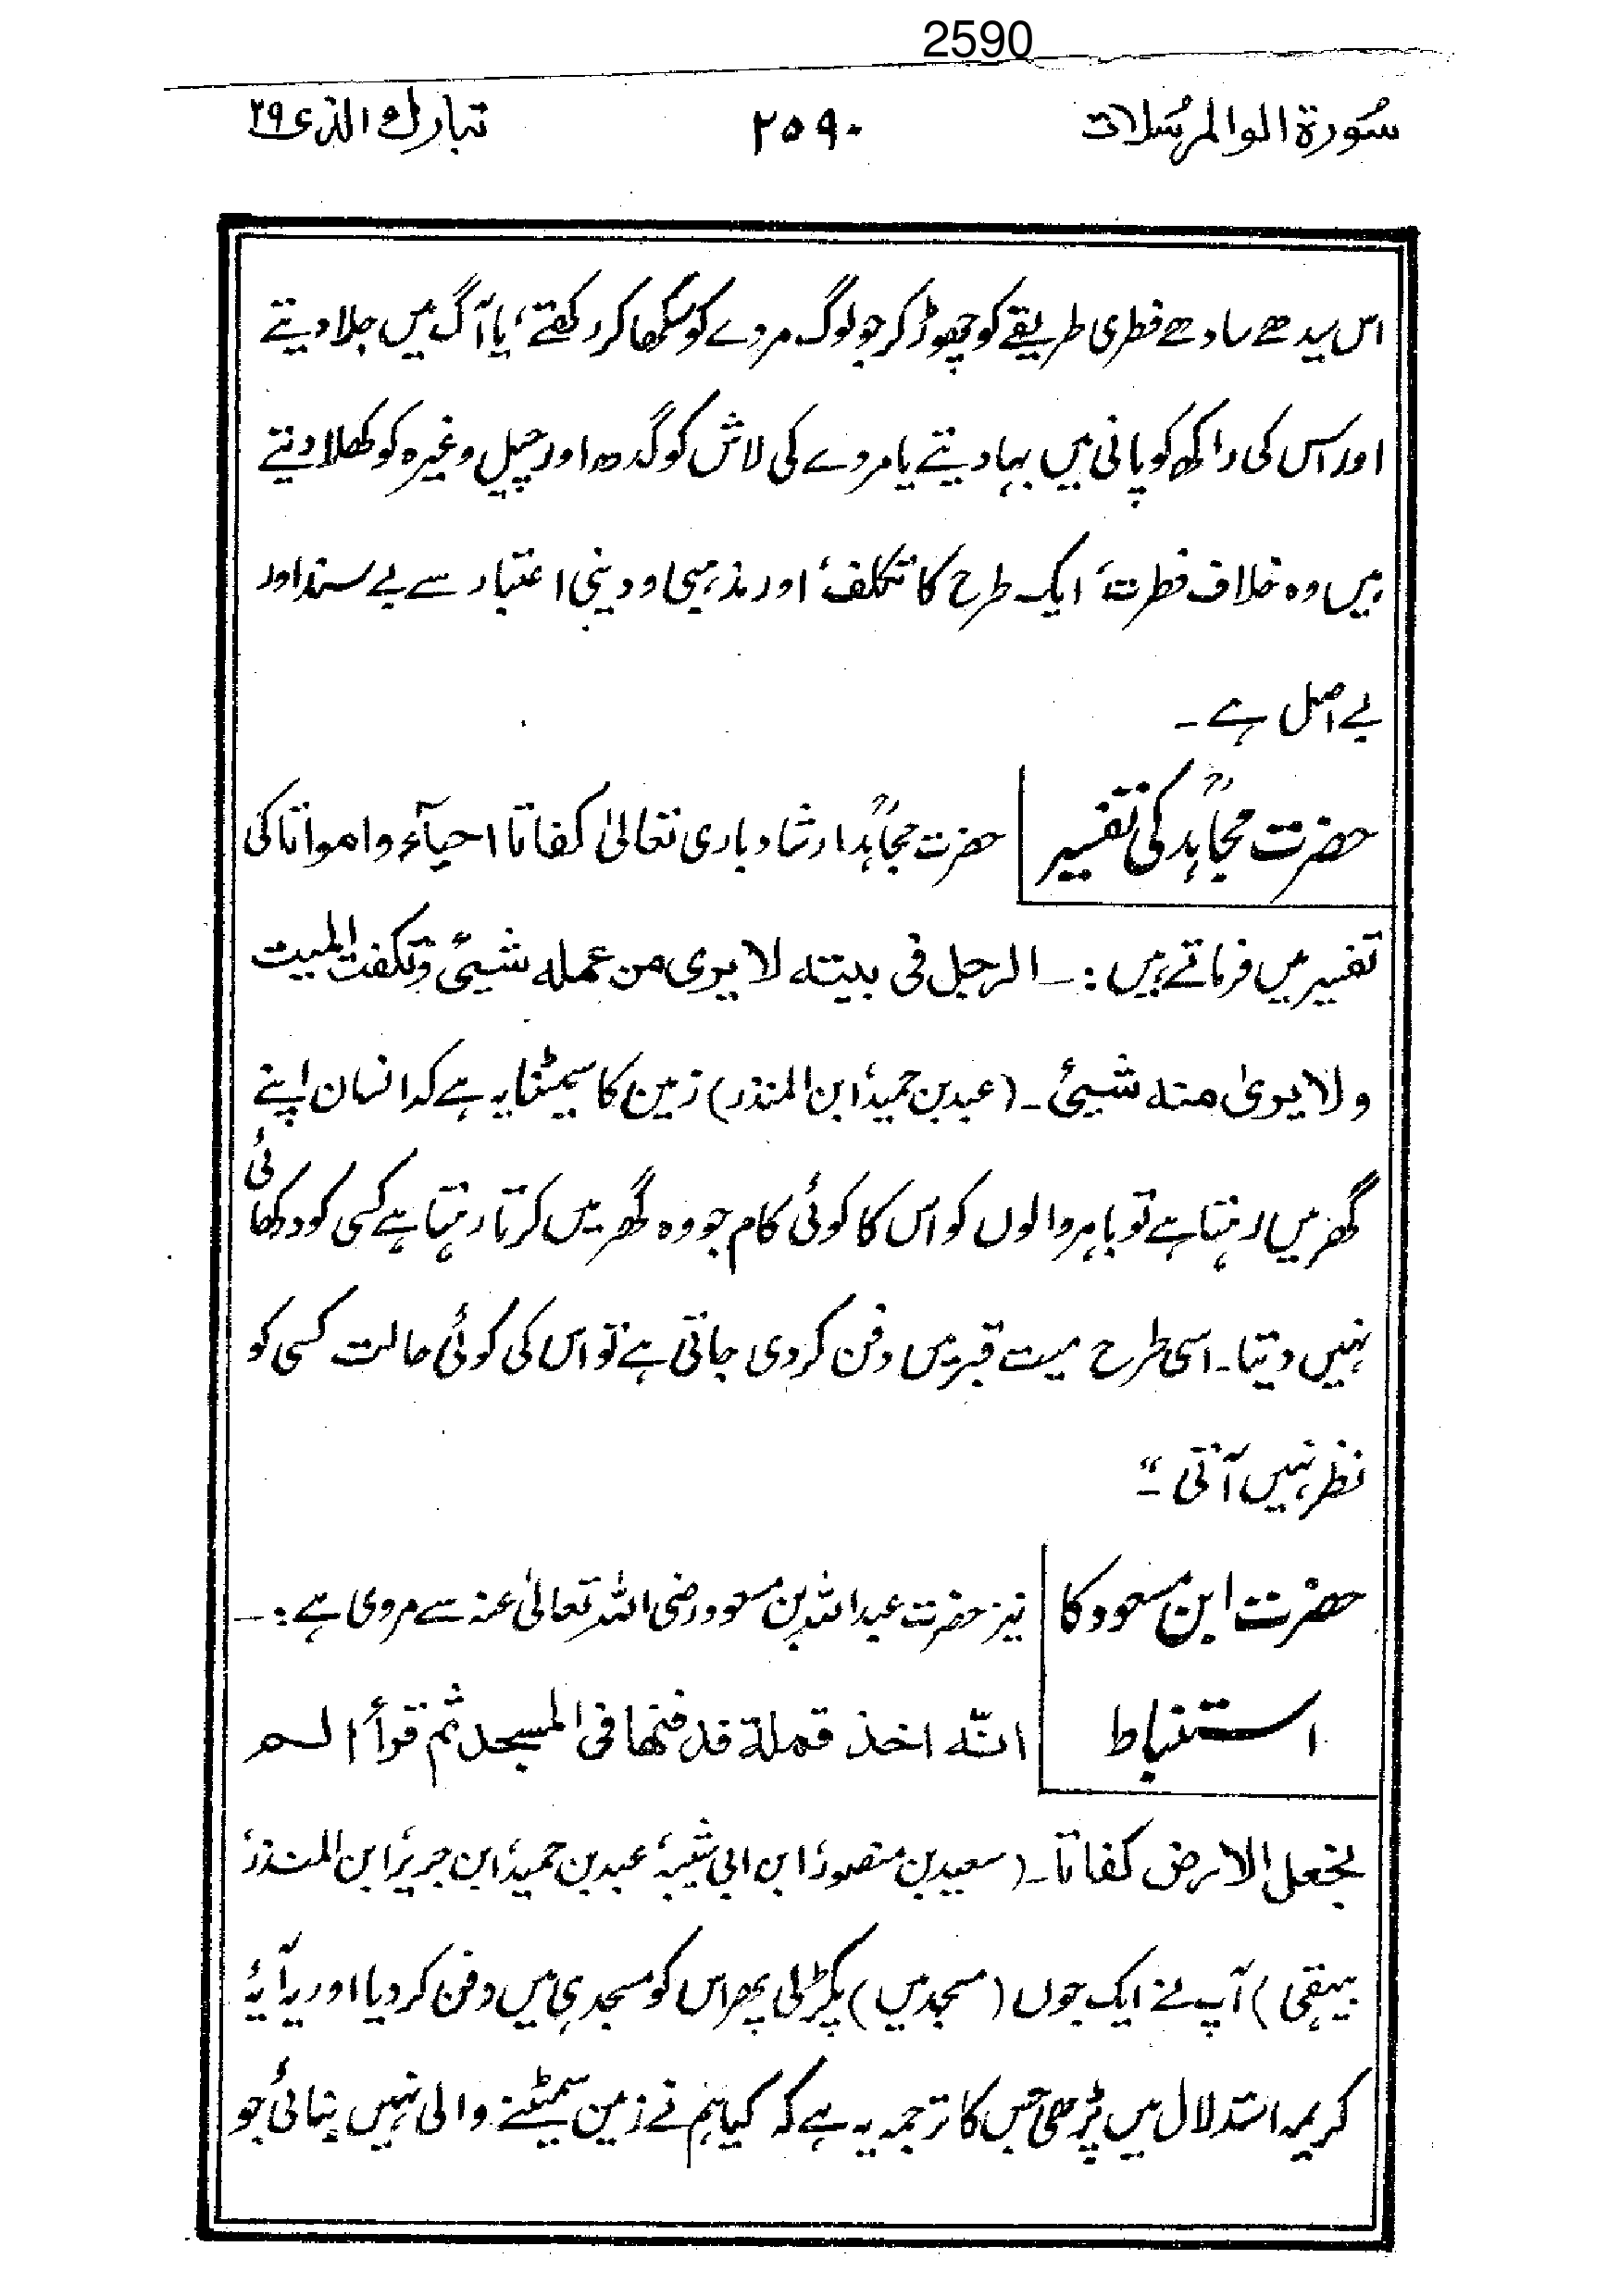 2590
سُورۃ الوالمرسُلات ۲۵۹۰ تبارك الذی ۲۹
اس سیدھے سادھے فطری طریقے کو چھوڑ کر جو لوگ مردے کو سُکھا کر رکھتے، یا آگ میں جلا دیتے
اور اس کی راکھ کو پانی میں بہا دیتے یا مردے کی لاش کو گدھ اور چیل وغیرہ کو کھلا دیتے
ہیں وہ خلاف فطرت، ایک طرح کا تکلف، اور مذہبی و دینی اعتبار سے بے سند اور
بے اصل ہے ۔
حضرت مجاہدؒ کی تفسیر حضرت مجاہدؒ ارشاد باری تعالیٰ کفاتا احیآء وامواتا کی
تفسیر میں فرماتے ہیں :۔ الرجل فی بیتہ لا یری من عملہ شیئ وتکفت المیت
ولا یریٰ منہ شیئ ۔ (عبد بن حمید، ابن المنذر) زمین کا سمیٹنا یہ ہے کہ انسان اپنے
گھر میں رہتا ہے تو باہر والوں کو اس کا کوئی کام جو وہ گھر میں کرتا رہتا ہے کسی کو دکھائی
نہیں دیتا ۔ اسی طرح میت قبر میں دفن کر دی جاتی ہے تو اس کی کوئی حالت کسی کو
نظر نہیں آتی ۔“
حضرت ابن مسعود کا نیز حضرت عبد اللہ بن مسعود رضی اللہ تعالیٰ عنہ سے مروی ہے :۔
استنباط انّہ اخذ قملۃ فدفنہا فی المسجد ثم قرأ الم
نجعل الارض کفاتا ۔ (سعید بن منصور، ابن ابی شیبہ، عبد بن حمید، ابن جریر، ابن المنذر،
بیہقی) آپ نے ایک جوں (مسجد میں) پکڑ لی پھر اس کو مسجد ہی میں دفن کر دیا اور یہ آیۂ
کریمہ استدلال میں پڑھی جس کا ترجمہ یہ ہے کہ کیا ہم نے زمین سمیٹنے والی نہیں بنائی جو